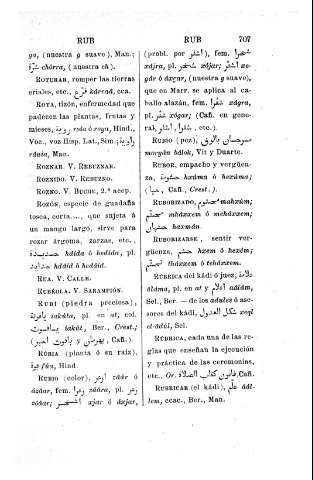 RUB
RUB
707
ga, (nuestra g suave), Man.;
شرّة chórra, (nuestra ch).
ROTURAR, romper las tierras
eriales, etc., قرّع kárrad, cca.
ROYA, tizón, enfermedad que
padecen las plantas, frutas y
mieses, روية roda ó roya, Hind.,
Voc., voz Hisp. Lat., Sim; راوية
ráuia, Man.
ROZNAR. V. REBUZNAR.
ROZNIDO. V. REBUZNO.
ROZNO. V. BUCHE, 2.ª acep.
ROZÓN, especie de guadaña
tosca, corta...., que sujeta á
un mango largo, sirve para
rozar árgoma, zarzas, etc.,
حديدة hdída ó hedida, pl.
حدايد hdáid ó hedáid.
RÚA. V. CALLE.
RUÉROLA. V. SARAMPIÓN.
RUBÍ (piedra preciosa),
ياقوتة iakúta, pl. en at, col.
ياقوت iakút, Ber., Crest.;
(بهرمان y ياقوت احمر, Cañ.).
RÚBIA (planta ó su raíz),
فوة fúa, Hind.
RUBIO (color), ازعر záâr ó
ázâar, fem. زعرا záâra, pl. زعر
zóâar; اشقر axjar ó áxjar,
(probl. por اشقر), fem. شقرا
xájra, pl. شقر xójar; اشقر xo-
gár ó áxgar, (nuestra g suave),
que en Marr. se aplica al ca-
ballo alazán, fem. شقرا xágra,
pl. شقر xógar; (Cañ. en gene-
ral, شقرا, اشقر, etc.).
RUBIO (pez), مرجان بالوق
maryán bálok, Vit y Duarte.
RUBOR, empacho y vergüen-
za, حشومة hxúma ó haxúma;
(حيا, Cañ., Crest.).
RUBORIZADO, محشوم mahxúm;
محتشم mhátxem ó mehátxem;
حشمان hexmán.
RUBORIZARSE, sentir ver-
güenza, حشم hxem ó hexém;
تحشم thátxem ó tehátxem.
RÚBRICA del kádi ó juez, علامة
âláma, pl. en at y اعلام aâlám,
Sel., Ber. — de los adules ó ase-
sores del kádi, شكل العدول xojel
el-âdúl, Sel.
RÚBRICA, cada una de las re-
glas que enseñan la ejecución
y práctica de las ceremonias,
etc., Or. قانون كتاب الصلاة, Cañ.
RUBRICAR (el kádi), علّم âál-
lem, ccac., Ber., Man.